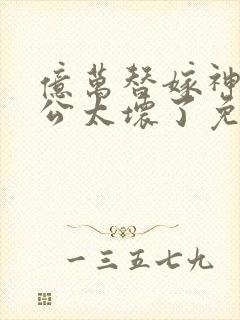 億萬替嫁神
公太壞了免
一三五七九